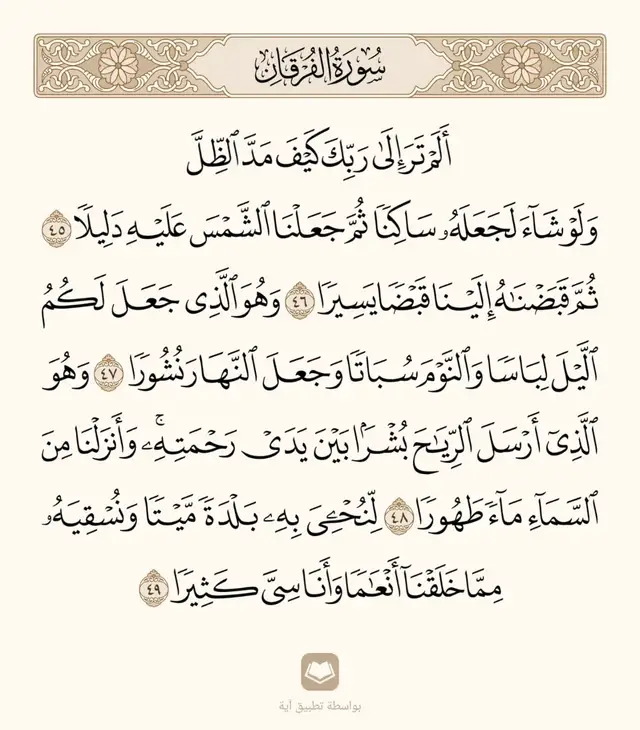 سُورَةُ الفُرۡقَانِ
أَلَمۡ تَرَ إِلَىٰ رَبِّكَ كَيۡفَ مَدَّ ٱلظِّلَّ
وَلَوۡ شَآءَ لَجَعَلَهُۥ سَاكِنٗا ثُمَّ جَعَلۡنَا ٱلشَّمۡسَ عَلَيۡهِ دَلِيلٗا ٤٥
ثُمَّ قَبَضۡنَٰهُ إِلَيۡنَا قَبۡضٗا يَسِيرٗا ٤٦ وَهُوَ ٱلَّذِي جَعَلَ لَكُمُ
ٱلَّيۡلَ لِبَاسٗا وَٱلنَّوۡمَ سُبَاتٗا وَجَعَلَ ٱلنَّهَارَ نُشُورٗا ٤٧ وَهُوَ
ٱلَّذِيٓ أَرۡسَلَ ٱلرِّيَٰحَ بُشۡرَۢا بَيۡنَ يَدَيۡ رَحۡمَتِهِۦۚ وَأَنزَلۡنَا مِنَ
ٱلسَّمَآءِ مَآءٗ طَهُورٗا ٤٨ لِّنُحۡـِۧيَ بِهِۦ بَلۡدَةٗ مَّيۡتٗا وَنُسۡقِيَهُۥ
مِمَّا خَلَقۡنَآ أَنۡعَٰمٗا وَأَنَاسِيَّ كَثِيرٗا ٤٩
بواسطة تطبيق آية